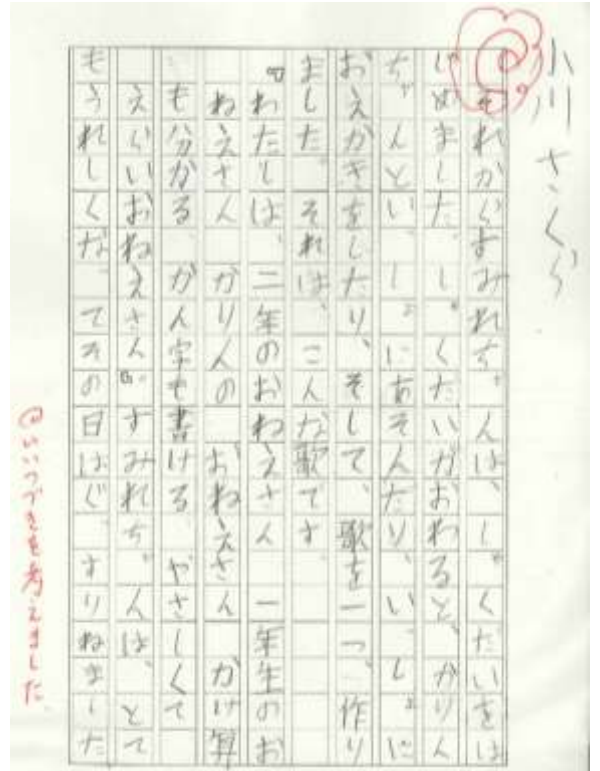 小川さくら
それからすみれちゃんは、しゅくだいをは
じめました。しゅくだいがおわると、かりん
ちゃんといっしょにあそんだり、いっしょに
おえかきをしたり、そして、歌を一つ、作り
ました。それは、こんな歌です。
「わたしは、二年のおねえさん 一年生のお
ねえさん かりんの おねえさん かけ算
も分かる かん字も書ける やさしくて
えらいおねえさん」。すみれちゃんは、とて
もうれしくなってその日はぐっすりねました
@いいつづきを考えました